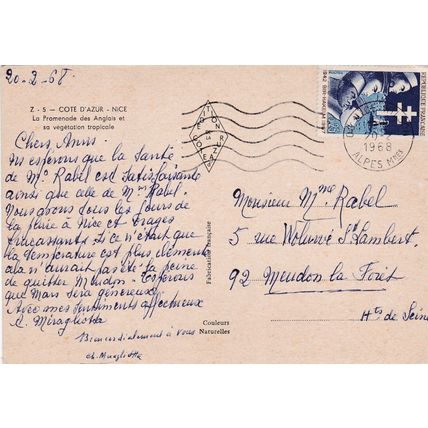 20-2-68
Z - 5 - COTE D'AZUR - NICE
La Promenade des Anglais et
sa végétation tropicale
Chers Amis.
Ns espérons que la santé
de Mr Rabel est satisfaisante
ainsi que celle de Mme Rabel.
Nous avons tous les jours de
la pluie à Nice et orages
fracassants. Si ce n'était que
la température est plus clémente
cela n'aurait pas été la peine
de quitter Meudon. Espérons
que Mars sera généreux.
Avec mes sentiments affectueux
Miragliotta
Bien cordialement à vous
ch. Miragliotta
Fabrication Française
Couleurs
Naturelles
REPUBLIQUE FRANÇAISE
1942 BIR-HAKEIM
1968
ALPES MMES
Monsieur Mme Rabel
5 rue Woluwé St Lambert
92 Meudon la Forêt
Hts de Seine